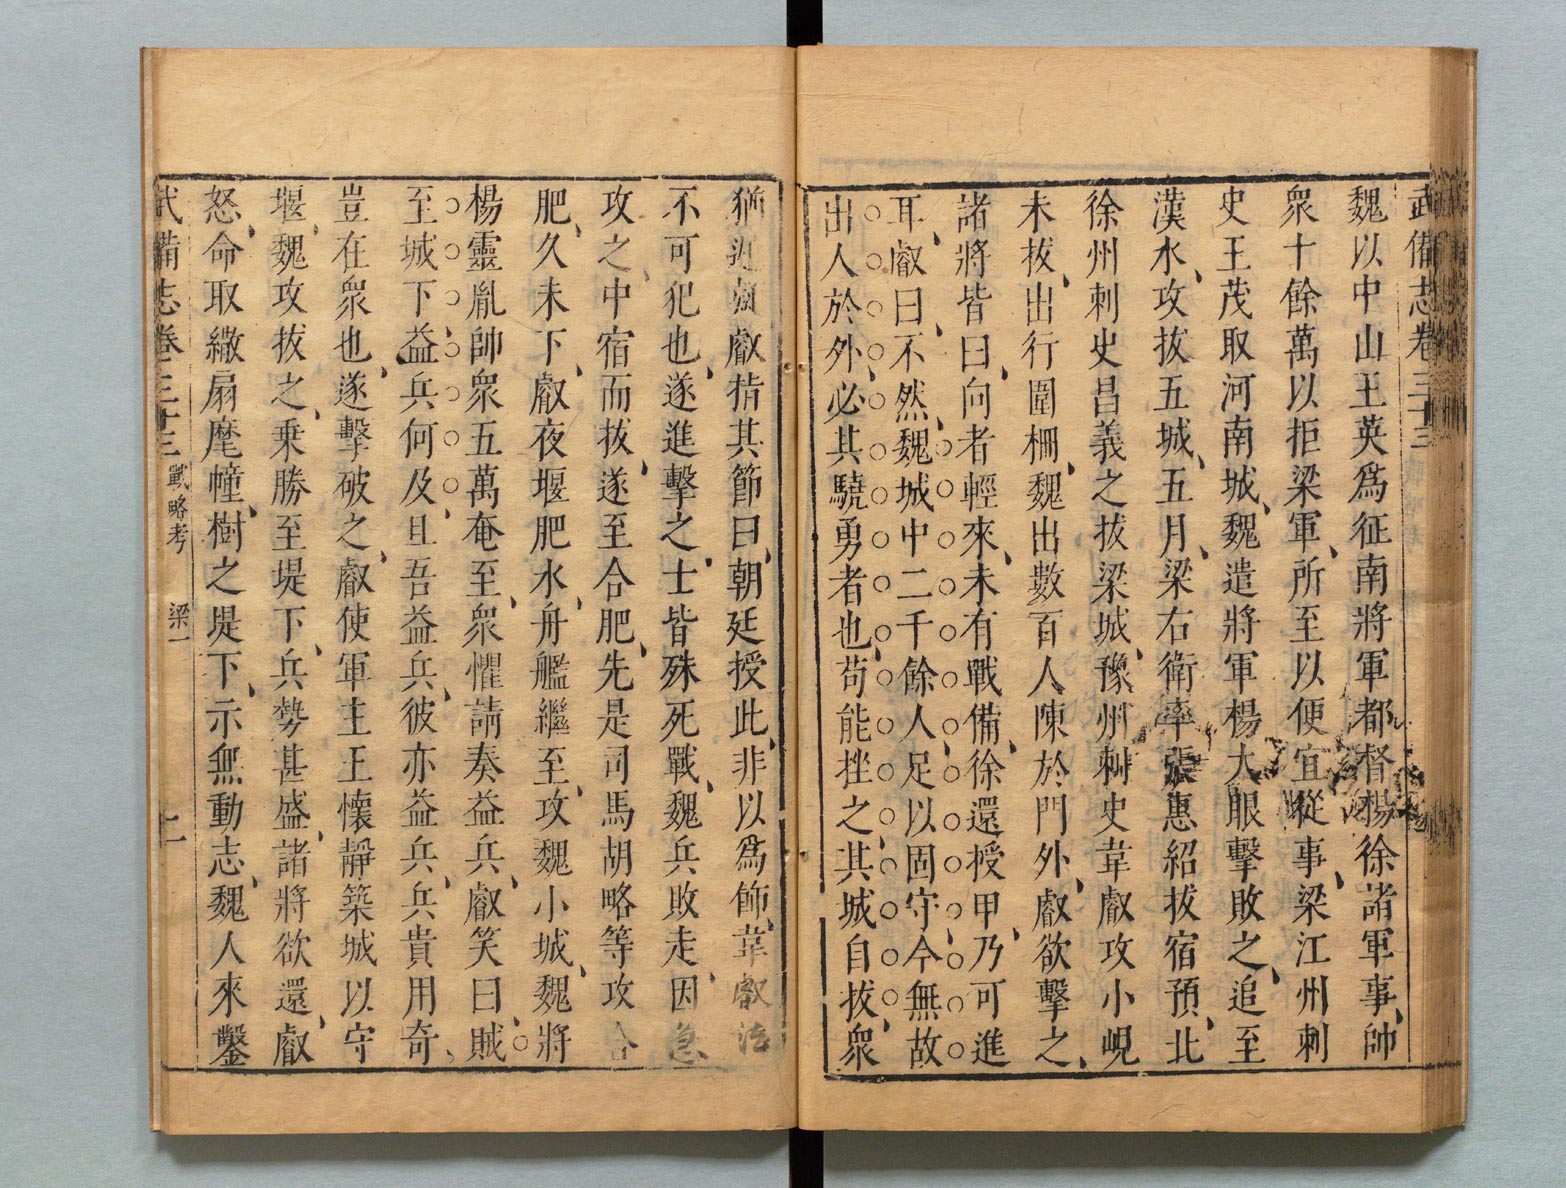 武備志卷三十三
魏以中山王英爲征南將軍都督楊徐諸軍事帥
衆十餘萬以拒梁軍所至以便宜從事梁江州刺
史王茂取河南城魏遣將軍楊大眼擊敗之追至
漢水攻拔五城五月梁右衛率張惠紹拔宿預北
徐州刺史昌義之拔梁城豫州刺史韋叡攻小峴
未拔出行圍柵魏出數百人陳於門外叡欲擊之
諸將皆曰向者輕來未有戰備徐還授甲乃可進
耳叡曰不然魏城中二千餘人足以固守今無故
出人於外必其驍勇者也苟能挫之其城自拔衆
猶遲疑叡指其節曰朝廷授此非以爲飾韋叡法
不可犯也遂進擊之士皆殊死戰魏兵敗走因急
攻之中宿而拔遂至合肥先是司馬胡略等攻合
肥久未下叡夜堰肥水舟艦繼至攻魏小城魏將
楊靈胤帥衆五萬奄至衆懼請奏益兵叡笑曰賊
至城下益兵何及且吾益兵彼亦益兵兵貴用奇
豈在衆也遂擊破之叡使軍主王懷靜築城以守
堰魏攻拔之乘勝至堤下兵勢甚盛諸將欲還叡
怒命取繖扇麾幢樹之堤下示無動志魏人來鑿
武備志卷三十三 戰略考 梁一 二